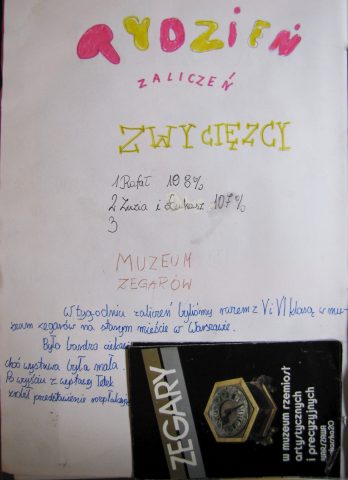 TYDZIEŃ
ZALICZEŃ
ZWYCIĘZCY
1 Rafał 198%
2 Zuzia i Łukasz 107%
3
MUZEUM
ZEGARÓW
W tygodniu zaliczeń byliśmy razem z V i VI klasą w mu-
zeum zegarów na starym mieście w Warszawie.
Było bardzo ciekawie
choć wystawa była mała.
Po wyjściu z wystawy Tolek
zrobił przedstawienie
ZEGARY
w muzeum rzemiosł
artystycznych
i precyzyjnych
warszawa
piekarska 20